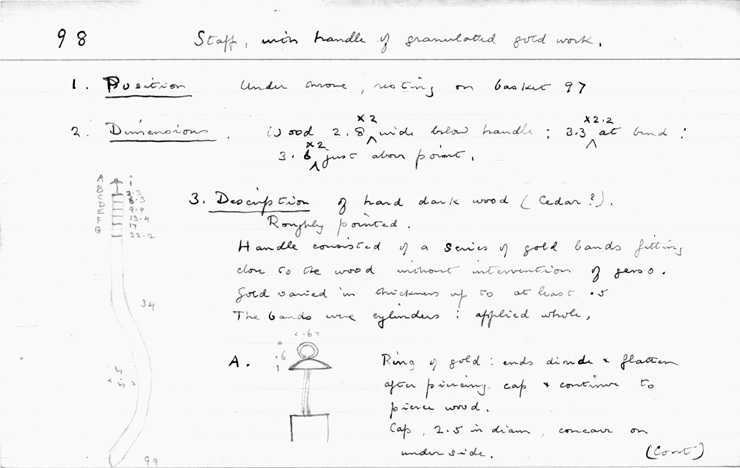 98
Staff, with handle of granulated gold work.
1. Position Under throne, resting on basket 97
2. Dimensions. Wood 2.8 x2 wide below handle: 3.3 x2.2 at bend:
3.6 x2 just above point.
3. Description of hard dark wood (Cedar?).
Roughly pointed.
Handle consisted of a series of gold bands fitting
close to the wood without intervention of gesso.
Gold varied in thickness up to at least .5
The bands were cylinders: applied whole,
A
B
C
D
E
F
G
1
2.3
9.9
13.4
17
22.2
34
99
A.
.6
.6
1
Ring of gold: ends divide & flatten
after piercing cap & continue to
pierce wood.
Cap, 2.5 in diam, concave on
under side.
(Cont)